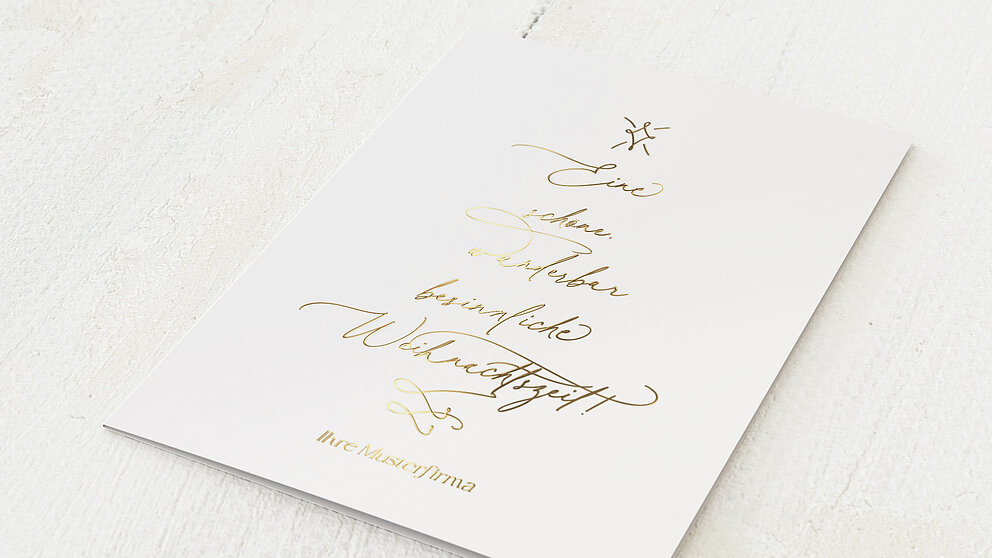 Eine
schöne,
wunderbar
besinnliche
Weihnachtszeit!
Ihre Musterfirma